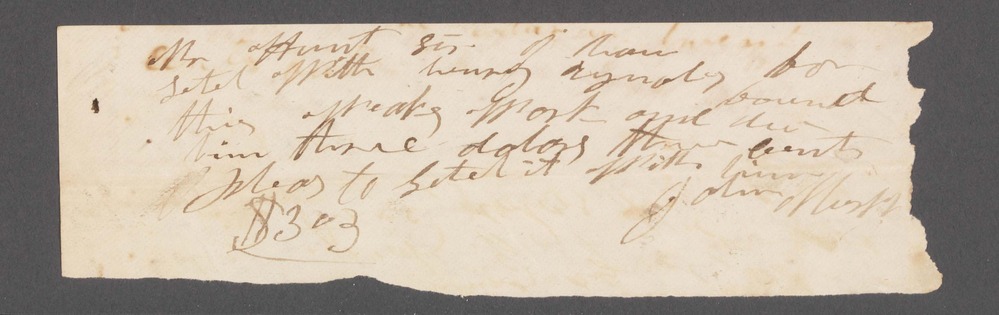 Mr Hunt Sir I have
setel With henry for
this Weaks Work and found due
him three dolars three cents
pleas to setel it With him
$3 03 John